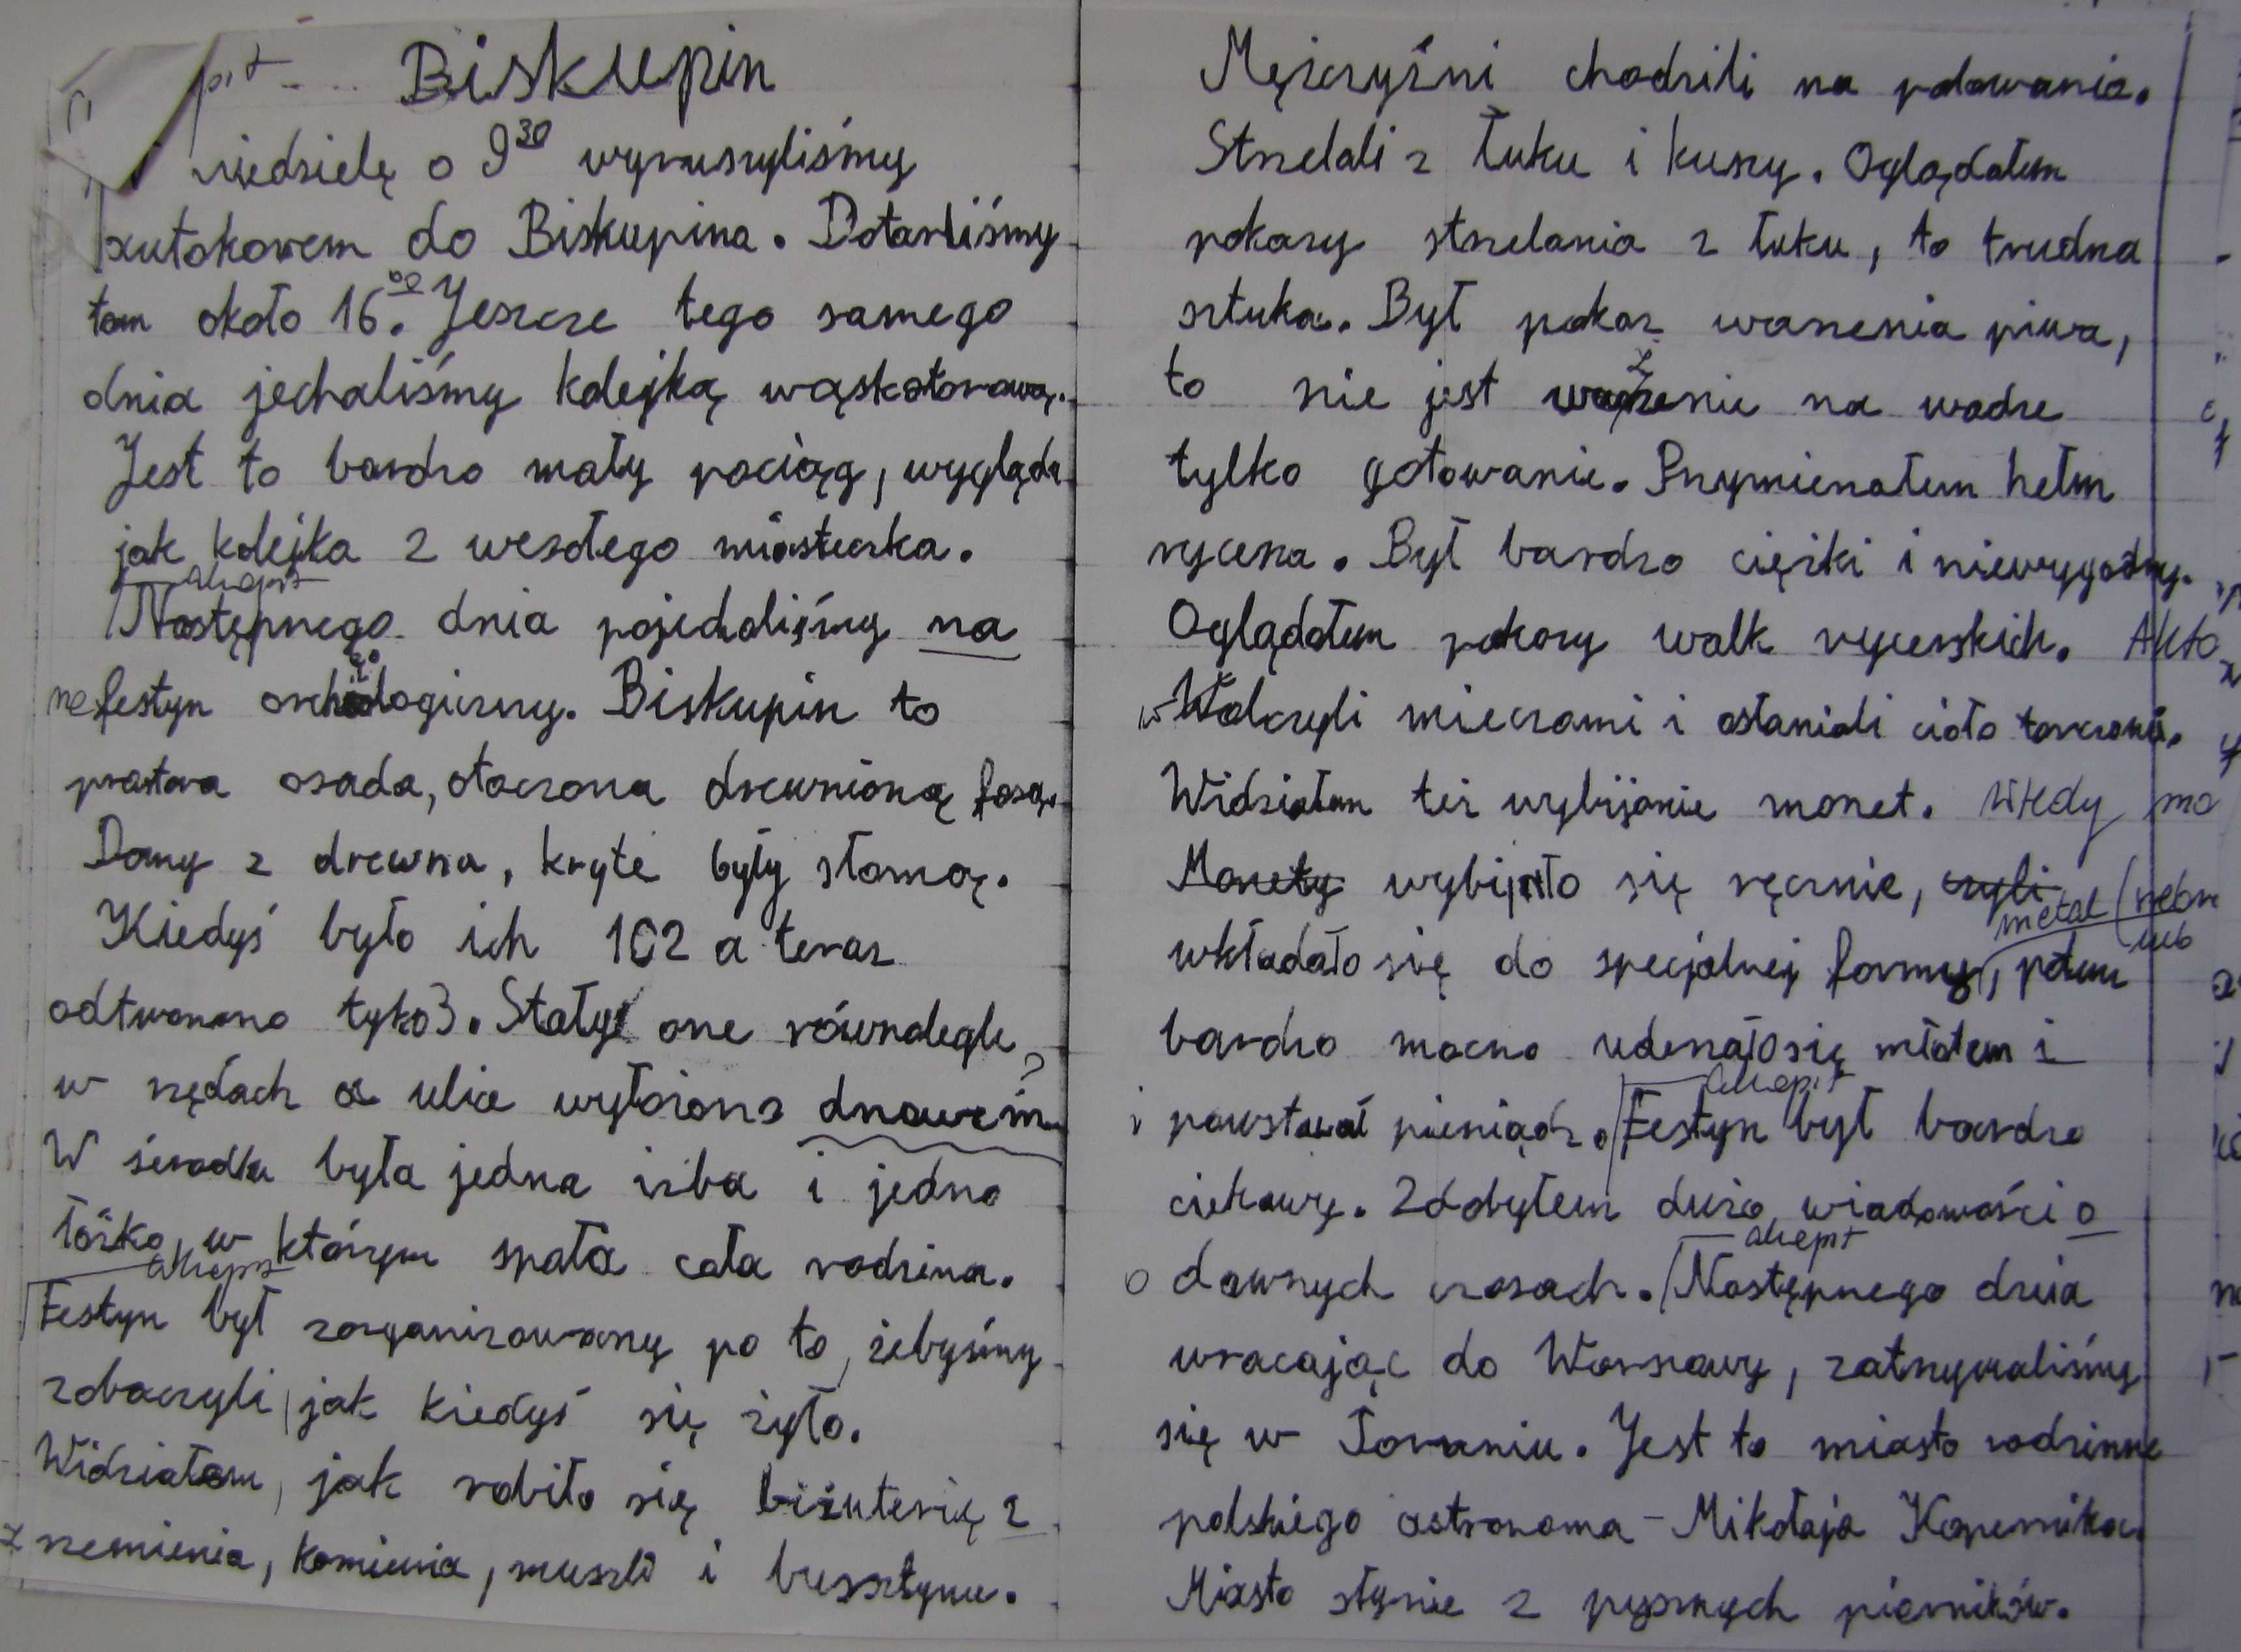 Biskupin
niedzielę o 9³⁰ wyruszyliśmy
autokarem do Biskupina. Dotarliśmy
tam około 16⁰⁰. Jeszcze tego samego
dnia jechaliśmy kolejką wąskotorową.
Jest to bardzo mały pociąg, wygląda
jak kolejka z wesołego miasteczka.
akapit
Następnego dnia pojechaliśmy na
na festyn archeologiczny. Biskupin to
prastara osada, otoczona drewnianą fosą.
Domy z drewna, kryte były słomą.
Kiedyś było ich 102 a teraz
odtworzono tylko 3. Stały one równolegle
w rzędach a ulice wyłożono drzewem ?
W środku była jedna izba i jedno
łóżko, w którym spała cała rodzina.
akapit
Festyn był zorganizowany po to, żebyśmy
zobaczyli, jak kiedyś się żyło.
Widziałem, jak robiło się biżuterię z
z rzemienia, kamienia, muszli i bursztynu.
Mężczyźni chodzili na polowania.
Strzelali z łuku i kuszy. Oglądałem
pokazy strzelania z łuku, to trudna
sztuka. Był pokaz warzenia piwa,
to nie jest ważenie na wadze
tylko gotowanie. Przymierzałem hełm
rycerza. Był bardzo ciężki i niewygodny.
Oglądałem pokazy walk rycerskich. Akto
w Walczyli mieczami i osłaniali ciało tarczami.
Widziałem też wybijanie monet. Wtedy mo
Monety wybijało się ręcznie, czyli
metal
lub
wkładało się do specjalnej formy, potem
bardzo mocno uderzało się młotem i
akapit
i powstawał pieniądz. Festyn był bardzo
ciekawy. Zdobyłem dużo wiadomości o
akapit
o dawnych czasach. Następnego dnia
wracając do Warszawy, zatrzymaliśmy
się w Toruniu. Jest to miasto rodzinne
polskiego astronoma - Mikołaja Kopernika.
Miasto słynie z pysznych pierników.